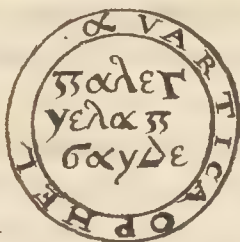 α VARTICAOPHEL
παλεΓ
γελαπ
σαγΔε